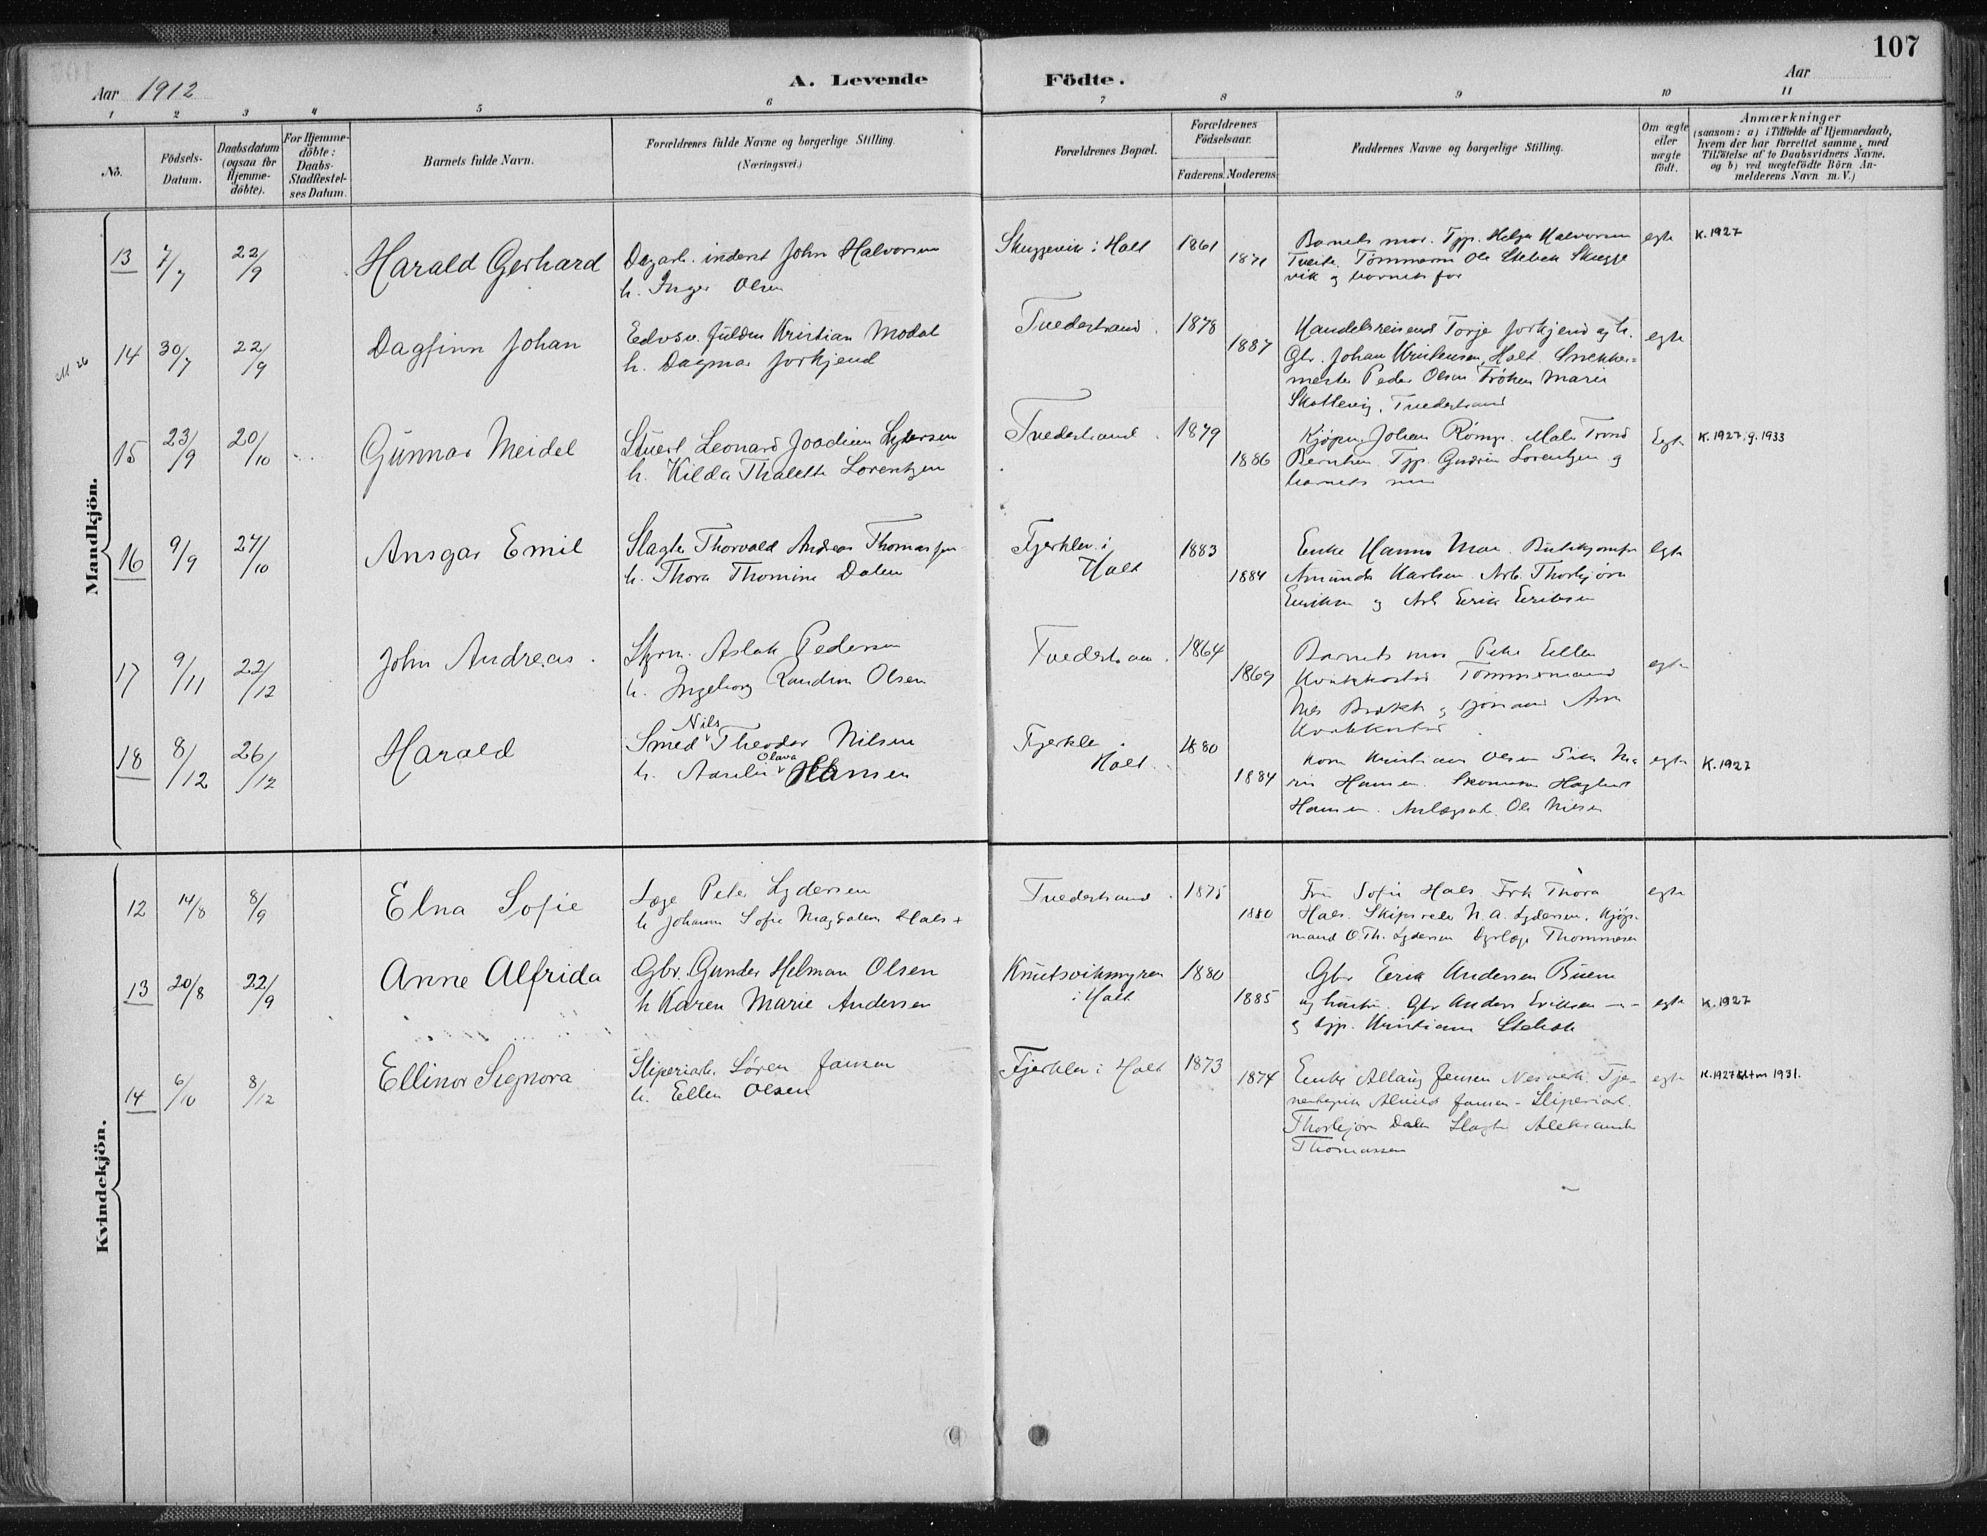 107
Aar 1912
A. Levende Födte.
Aar
1 2 3 4 5 6 7 8 9 10 11
No.
Födsels-Datum.
Daabsdatum (ogsaa for Hjemme-döbte).
For Hjemme-döbte: Daabs-Stadfæstel-ses Datum.
Barnets fulde Navn.
Forældrenes fulde Navne og borgerlige Stilling.
(Næringsvei.)
Forældrenes Bopæl.
Forældrenes Födselsaar.
Faderens. Moderens.
Faddernes Navne og borgerlige Stilling.
Om ægte eller uægte födt.
Anmærkninger
(saasom: a) i Tilfælde af Hjemmedaab,
hvem der har forrettet samme, med
Tilföielse af to Daabsvidners Navne,
og b) ved uægtefödte Börn An-
melderens Navn m. V.)
Mandkjön.
13 7/7 22/9 Harald Gerhard
Dagarb. inderst John Halvorsen
h. Inger Olsen
Skuggevik i Holt 1861 1871
Barnets mor. Tpp. Helga Halvorsen
Tveite. Tømmerm Ole Stebek Skugge
vik og barnets far
egte K. 1927
M 26
14 30/7 22/9 Dagfinn Johan
Kristian Modal
h. Dagmar Forkjend
Tvedestrand. 1878 1887
Handelsreisend Torje Forkjend og h.
Gbr. Johan Kristensen, Holt. Snekker=
mester Peder Olsen Frøken Marie
Skottevig, Tvedestrand
egte
15 23/9 20/10 Gunnar Meidel
Stuert Leonard Joachim Lydersen
h. Kilda Thalette Lorentzen
Tvedestrand. 1879 1886
Kjøpm. Johan Maler Trond
Berntsen. Tpp. Gudrun Lorentzen og
barnets mor
Egte K. 1927. g. 1933
16 9/9 27/10 Ansgar Emil
Slagter Thorvald Andreas Thomassen
h. Thora Thomine Dalen
Fjerkler i
Holt
1883 1884
Enke Hanna Moe.
Amunda Karlsen. Arb. Thorbjørn
Eriksen og Arb Erik Eriksen
egte
17 9/11 22/12 John Andreas.
Styrm. Aslak Pedersen
h. Ingeborg Randine Olsen
Tvedestran. 1864 1869
Barnets mor Pike Ellen
Tømmermand
egte
18 8/12 26/12 Harald
Nils
Smed Theodor Nilsen
Olava
h. Aaselie Hansen
Fjerkler i
Holt.
1880 1884
Kone Kristiane Olsen Pike Ma
rie Hansen.
Hansen. Anlægsarb. Ole Nilsen
egte K. 1927
Kvindekjön.
12 14/8 8/9 Elna Sofie
Læge Peter Lydersen
h Johanne Sofie Magdalene Hals
Tvedestrand. 1875 1880
Fru Sofie Hals Frk Thora
Hals. Skipsreder N. A. Lydersen. Kjøp-
mand O. Th. Lydersen Dyrlæge Thommesen
egte
13 20/8 22/9 Anne Alfrida
Gbr. Gunder Helman Olsen
h Karen Marie Andersen
Knutsvikmyren
i Holt
1880 1885
Gbr Erik Andersen Buene
og hustru. Gbr Anders Eriksen
og tpp. Kristiane Stebek
egte K. 1927
14 6/10 8/12 Ellinor Signora
Sliperiarb. Søren Jansen
h. Ellen Olsen
Fjerkler i Holt 1873 1874
Enke Allaug Jensen Nesverk. Tje-
nestepike Jansen - Sliperiarb.
Thorbjørn Dalen Slagter Aleksander
Thomassen
egte K. 1927 1931.